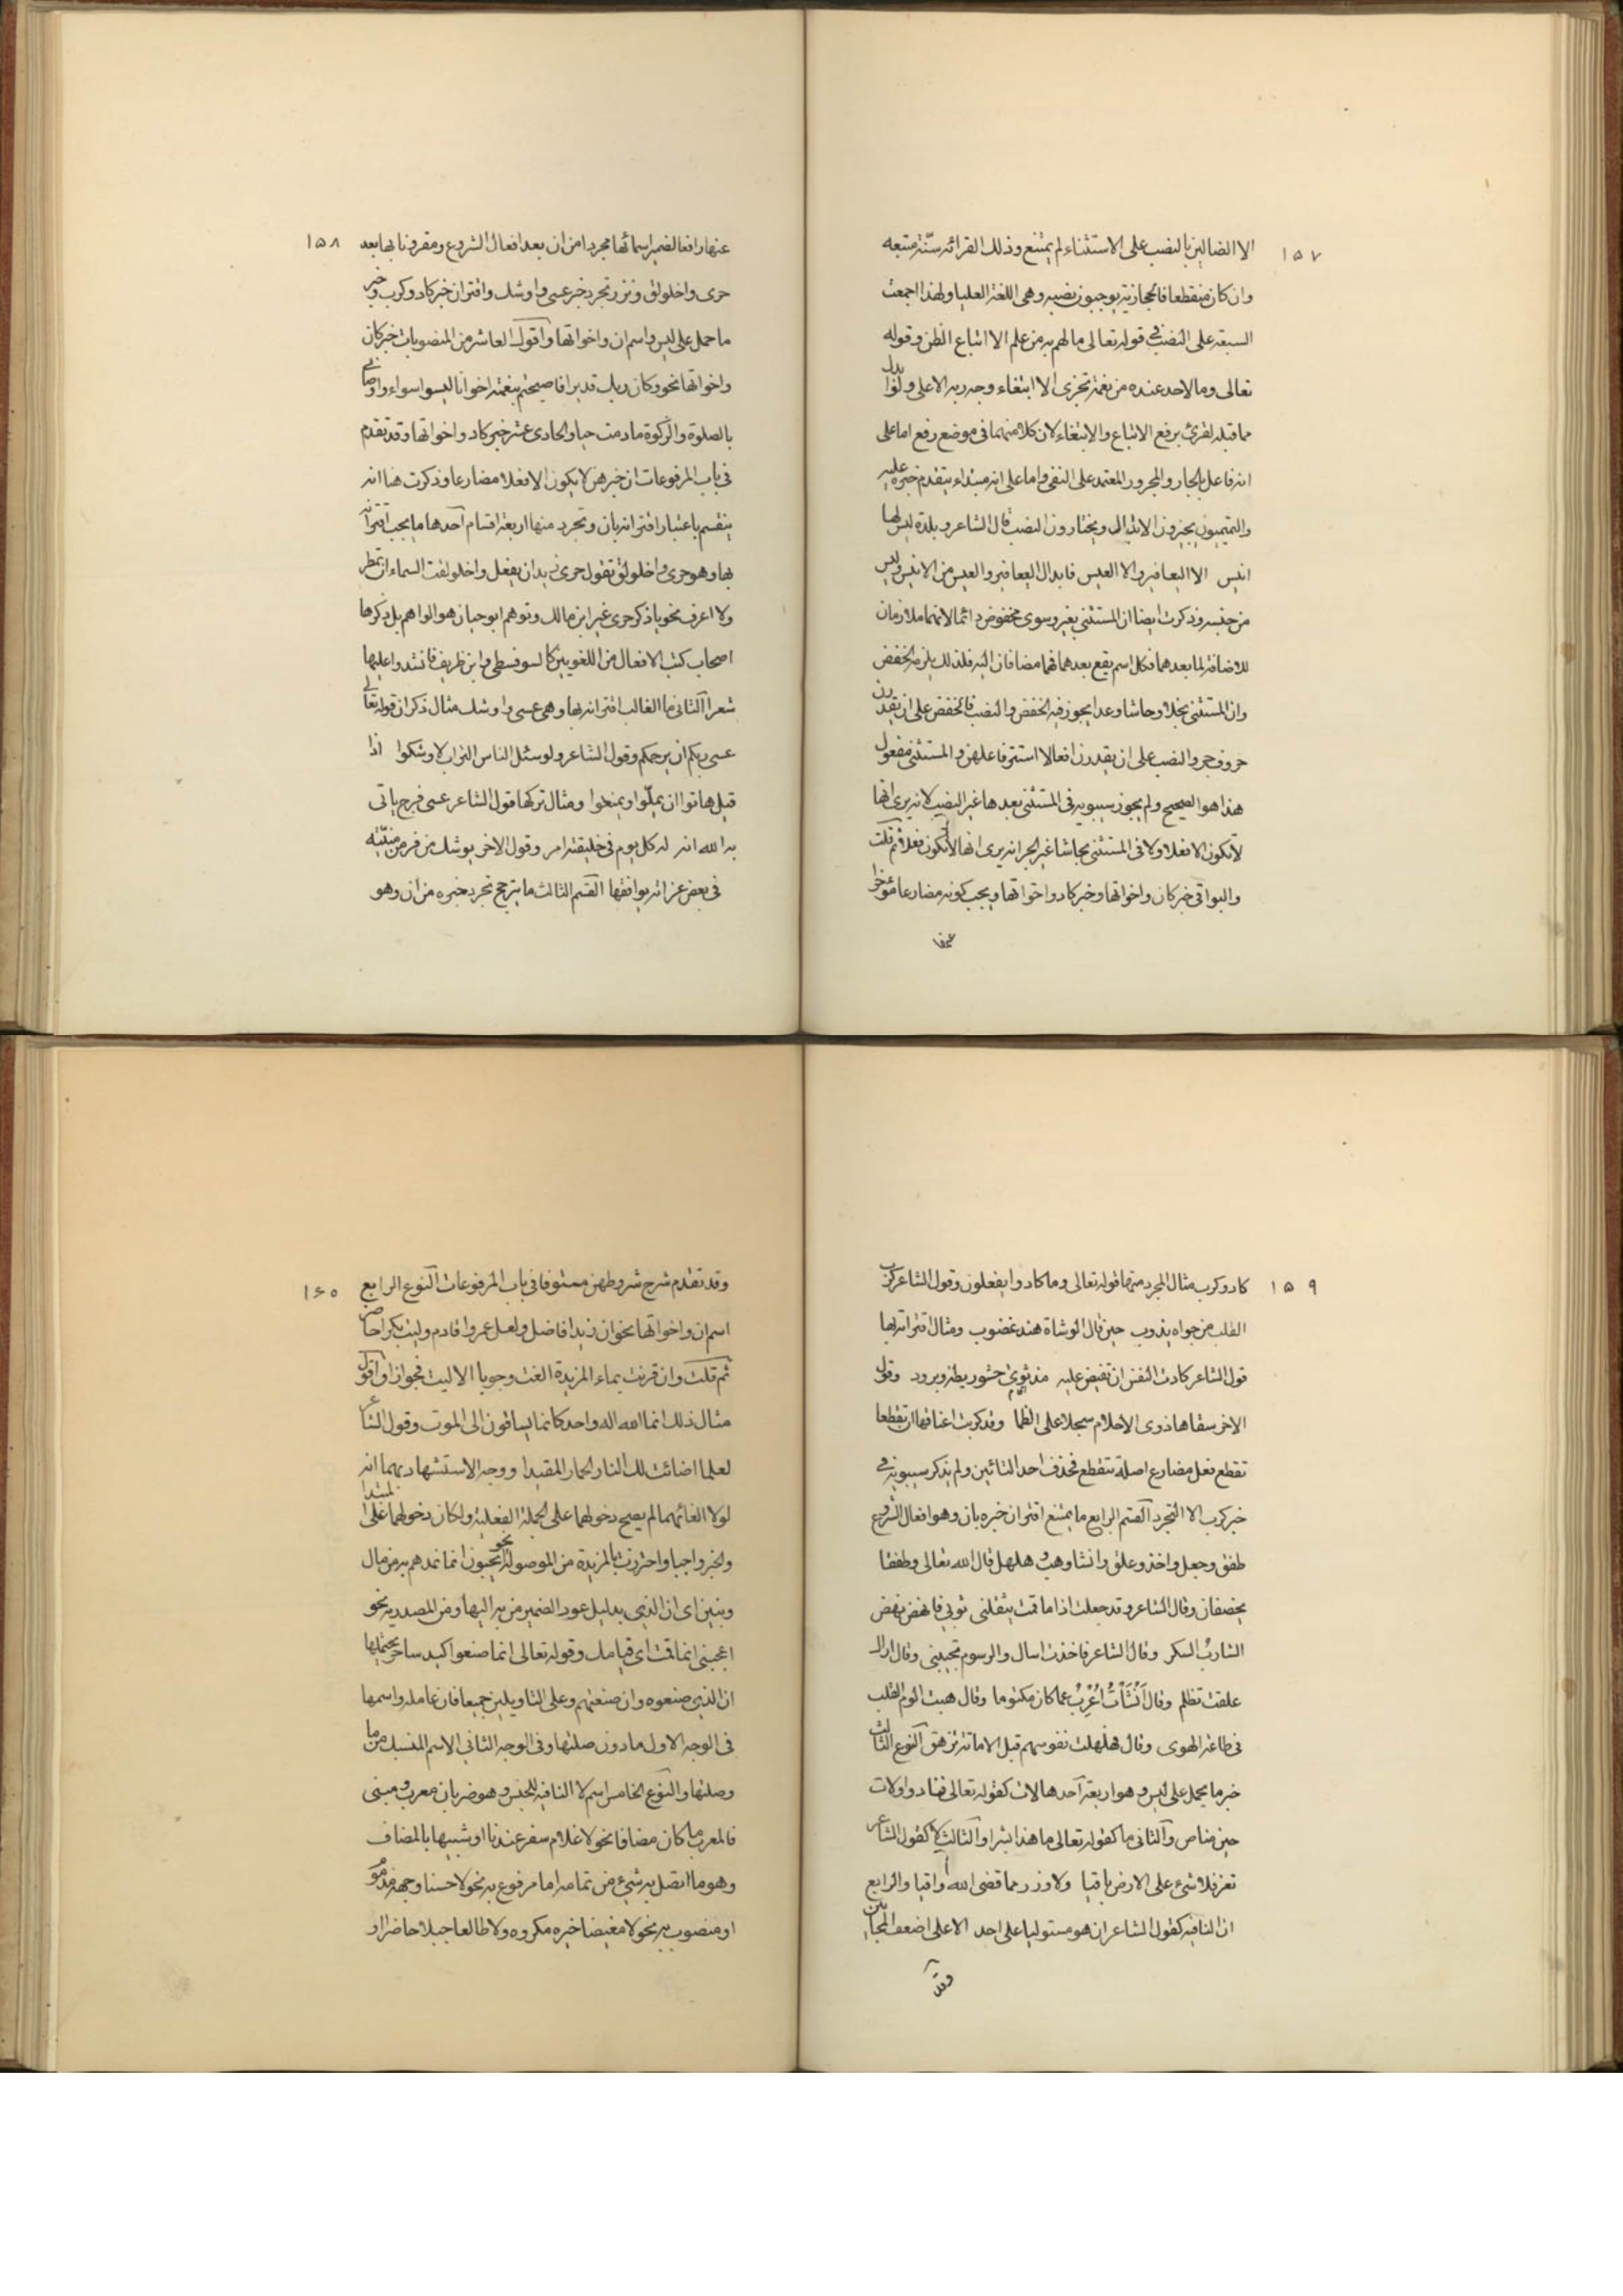 ١٥٧
الا الضالين بالنصب على الاستثناء لم يمتنع وذلك القرائه سنّة متبعه
وان كان منقطعا فالحجازية يوجبون نصبه وهى اللغة العليا ولهذا اجمعت
السبعه على النصب فى قوله تعالى مالهم به من علم الا اتباع الظن وقوله
تعالى وما لاحد عنده من نعمة تجزى الا ابتغاء وجه ربه الاعلى ولو ابدل
مما قبله لقرئ برفع الاتباع والابتغاء لان كلا منهما فى موضع رفع اما على
انه فاعل بالجار والمجرور المعتمد على النفى واما على انه مبتداء يتقدم خبره عليه
والتميميون يجيزون الابدال ويختارون النصب قال الشاعر وبلدة ليس لها
انيس الا اليعافير والا العيس فابدال اليعافير والعيس من الانيس وليس
من جنسه وذكرت ايضا ان المستثنى بغير وسوى مخفوض دائما لانهما ملازمان
للاضافة لما بعدهما فكل اسم يقع بعدهما فهما مضافان اليه فلذلك يلزمه الخفض
وان المستثنى بخلا وحاشا وعدا يجوز فيه الخفض والنصب فالخفض على ان يقدرن
حروف جر والنصب على ان يقدرن افعالا استتر فاعلهن والمستثنى مفعول
هذا هو الصحيح ولم يجوز سيبويه فى المستثنى بعدها غير النصب لانه يرى انها
لاتكون الا فعلا ولا فى المستثنى بحاشا غير الجر انه يرى انها لاتكون فعلا ثم قلت
والبواقى خبر كان واخواتها وخبر كاد واخواتها ويجب كونه مضارعا مؤخرا
عنها
١٥٨
عنها رافعا لضمير اسمائها مجردا من ان بعد افعال الشروع ومقرونا بها بعد
حرى واخلولق وندر تجرد خبر عسى واوشك واقتران خبر كاد وكرب وخبر
ما حمل على ليس واسم ان واخواتها واقول العاشر من المنصوبات خبر كان
واخواتها نحو وكان ربك قديرا فاصبحتم بنعمته اخوانا ليسوا سواء واوصانى
بالصلوة والزكوة مادمت حيا والحادى عشر خبر كاد واخواتها وقد تقدم
فى باب المرفوعات ان خبرهن لا يكون الا فعلا مضارعا وذكرت هنا انه
ينقسم باعتبار اقترانه بان وتجرد منها اربعة اقسام احدها ما يجب اقترانه
بها وهو حرى واخلولق تقول حرى زيد ان يفعل واخلولقت السماء ان تمطر
ولا اعرف نحويا ذكر حرى غير ابن مالك وتوهم ابو حيان هو الواهم بل ذكرها
اصحاب كتب الافعال من اللغويين كالسوقسطى وابن ظريف فانشدوا عليها
شعرا الثانى ما الغالب اقترانه بها وهى عسى واوشك مثال ذكر ان قوله تعالى
عسى ربكم ان يرحمكم وقول الشاعر ولو سئل الناس التراب لاوشكوا اذا
قيل هاتوا ان يملّوا ويمنعوا ومثال تركها قول الشاعر عسى فرج ياتى
به الله انه له كل يوم فى خليقته امر وقول الاخر يوشك من فر من منيّته
فى بعض غراته يوافقها القسم الثالث ما يترجح تجرد خبره من ان وهو
١٥٩
كاد وكرب مثال المجرد منها قوله تعالى وما كادوا يفعلون وقول الشاعر كرب
القلب من جواه يذوب حين قال الوشاة هند غضوب ومثال اقترانه بها
قول الشاعر كادت النفس ان تفيض عليه مذ ثوى حشو ريطه وبرود وقول
الاخر سقاها ذوى الاحلام سجلا على الظما وقد كربت اعناقها ان تقطعا
تقطع فعل مضارع اصله تتقطع فحذف احد التائين ولم يذكر سيبويه فى
خبر كرب الا التجرد القسم الرابع ما يمتنع اقتران خبره بان وهو افعال الشروع
طفق وجعل واخذ وعلق وانشا وهب وهلهل قال الله تعالى وطفقا
يخصفان وقال الشاعر وقد جعلت اذا ماقمت يثقلنى ثوبى فانهض نهض
الشارب السكر وقال الشاعر فاخذت اسال والرسوم تجيبنى وقال اراك
علقت تظلم وقال أَنْشَأتُ أعْرِبُ عما كان مكتوما وقال هببت الوم القلب
فى طاعة الهوى وقال فهلهلت نفوسهم قبل الاماتة تزهق النوع الثالث
خبر ما يحمل على ليس وهو اربعة احدها لات كقوله تعالى فنادوا ولات
حين مناص والثانى ما كقوله تعالى ما هذا بشرا والثالث لا كقول الشاعر
تعز فلا شىء على الارض باقيا ولا وزر مما قضى الله واقيا والرابع
ان النافيه كقول الشاعر ان هو مستوليا على احد الا على اضعف المجانين
وقد
١٦٠
وقد تقدم شرح شروطهن مستوفا فى باب المرفوعات النوع الرابع
اسم ان واخواتها نحو ان زيدا فاضل ولعل عمروا قادم وليت بكرا حاضر
ثم قلت وان قرنت بماء المزيدة الغت وجوبا الا ليت فجوازا واقول
مثال ذلك انما الله اله واحد كانما يساقون الى الموت وقول الشاعر
لعلما اضائت لك النار الحمار المقيدا ووجه الاستشهاد بهما انه
لولا الغائهما لم يصح دخولهما على الجملة الفعليه ولكان دخولهما على المبتدا
والخبر واجبا واحترزت بالمزيدة من الموصوله نحو ايحسبون انما نمدهم به من مال
وبنين اى ان الذى بدليل عود الضمير من به اليها ومن المصدريه نحو
اعجبنى انما قمت اى قيامك وقوله تعالى انما صنعوا كيد ساحر يحتملها
ان الذى صنعوه وان صنعتهم وعلى التاويلين جميعا فان عامله واسمها
فى الوجه الاول ما دون صلتها وفى الوجه الثانى الاسم المنسبك من ما
وصلتها والنوع الخامس اسم لا النافيه للجنس وهو ضربان معرب ومبنى
فالمعرب ما كان مضافا نحو لا غلام سفر عندنا او شبيها بالمضاف
وهو ما اتصل به شىء من تمامه اما مرفوع به نحو لا حسنا وجهه مذموم
او منصوب به نحو لا مغيضا خيره مكروه ولا طالعا جبلا حاضر او